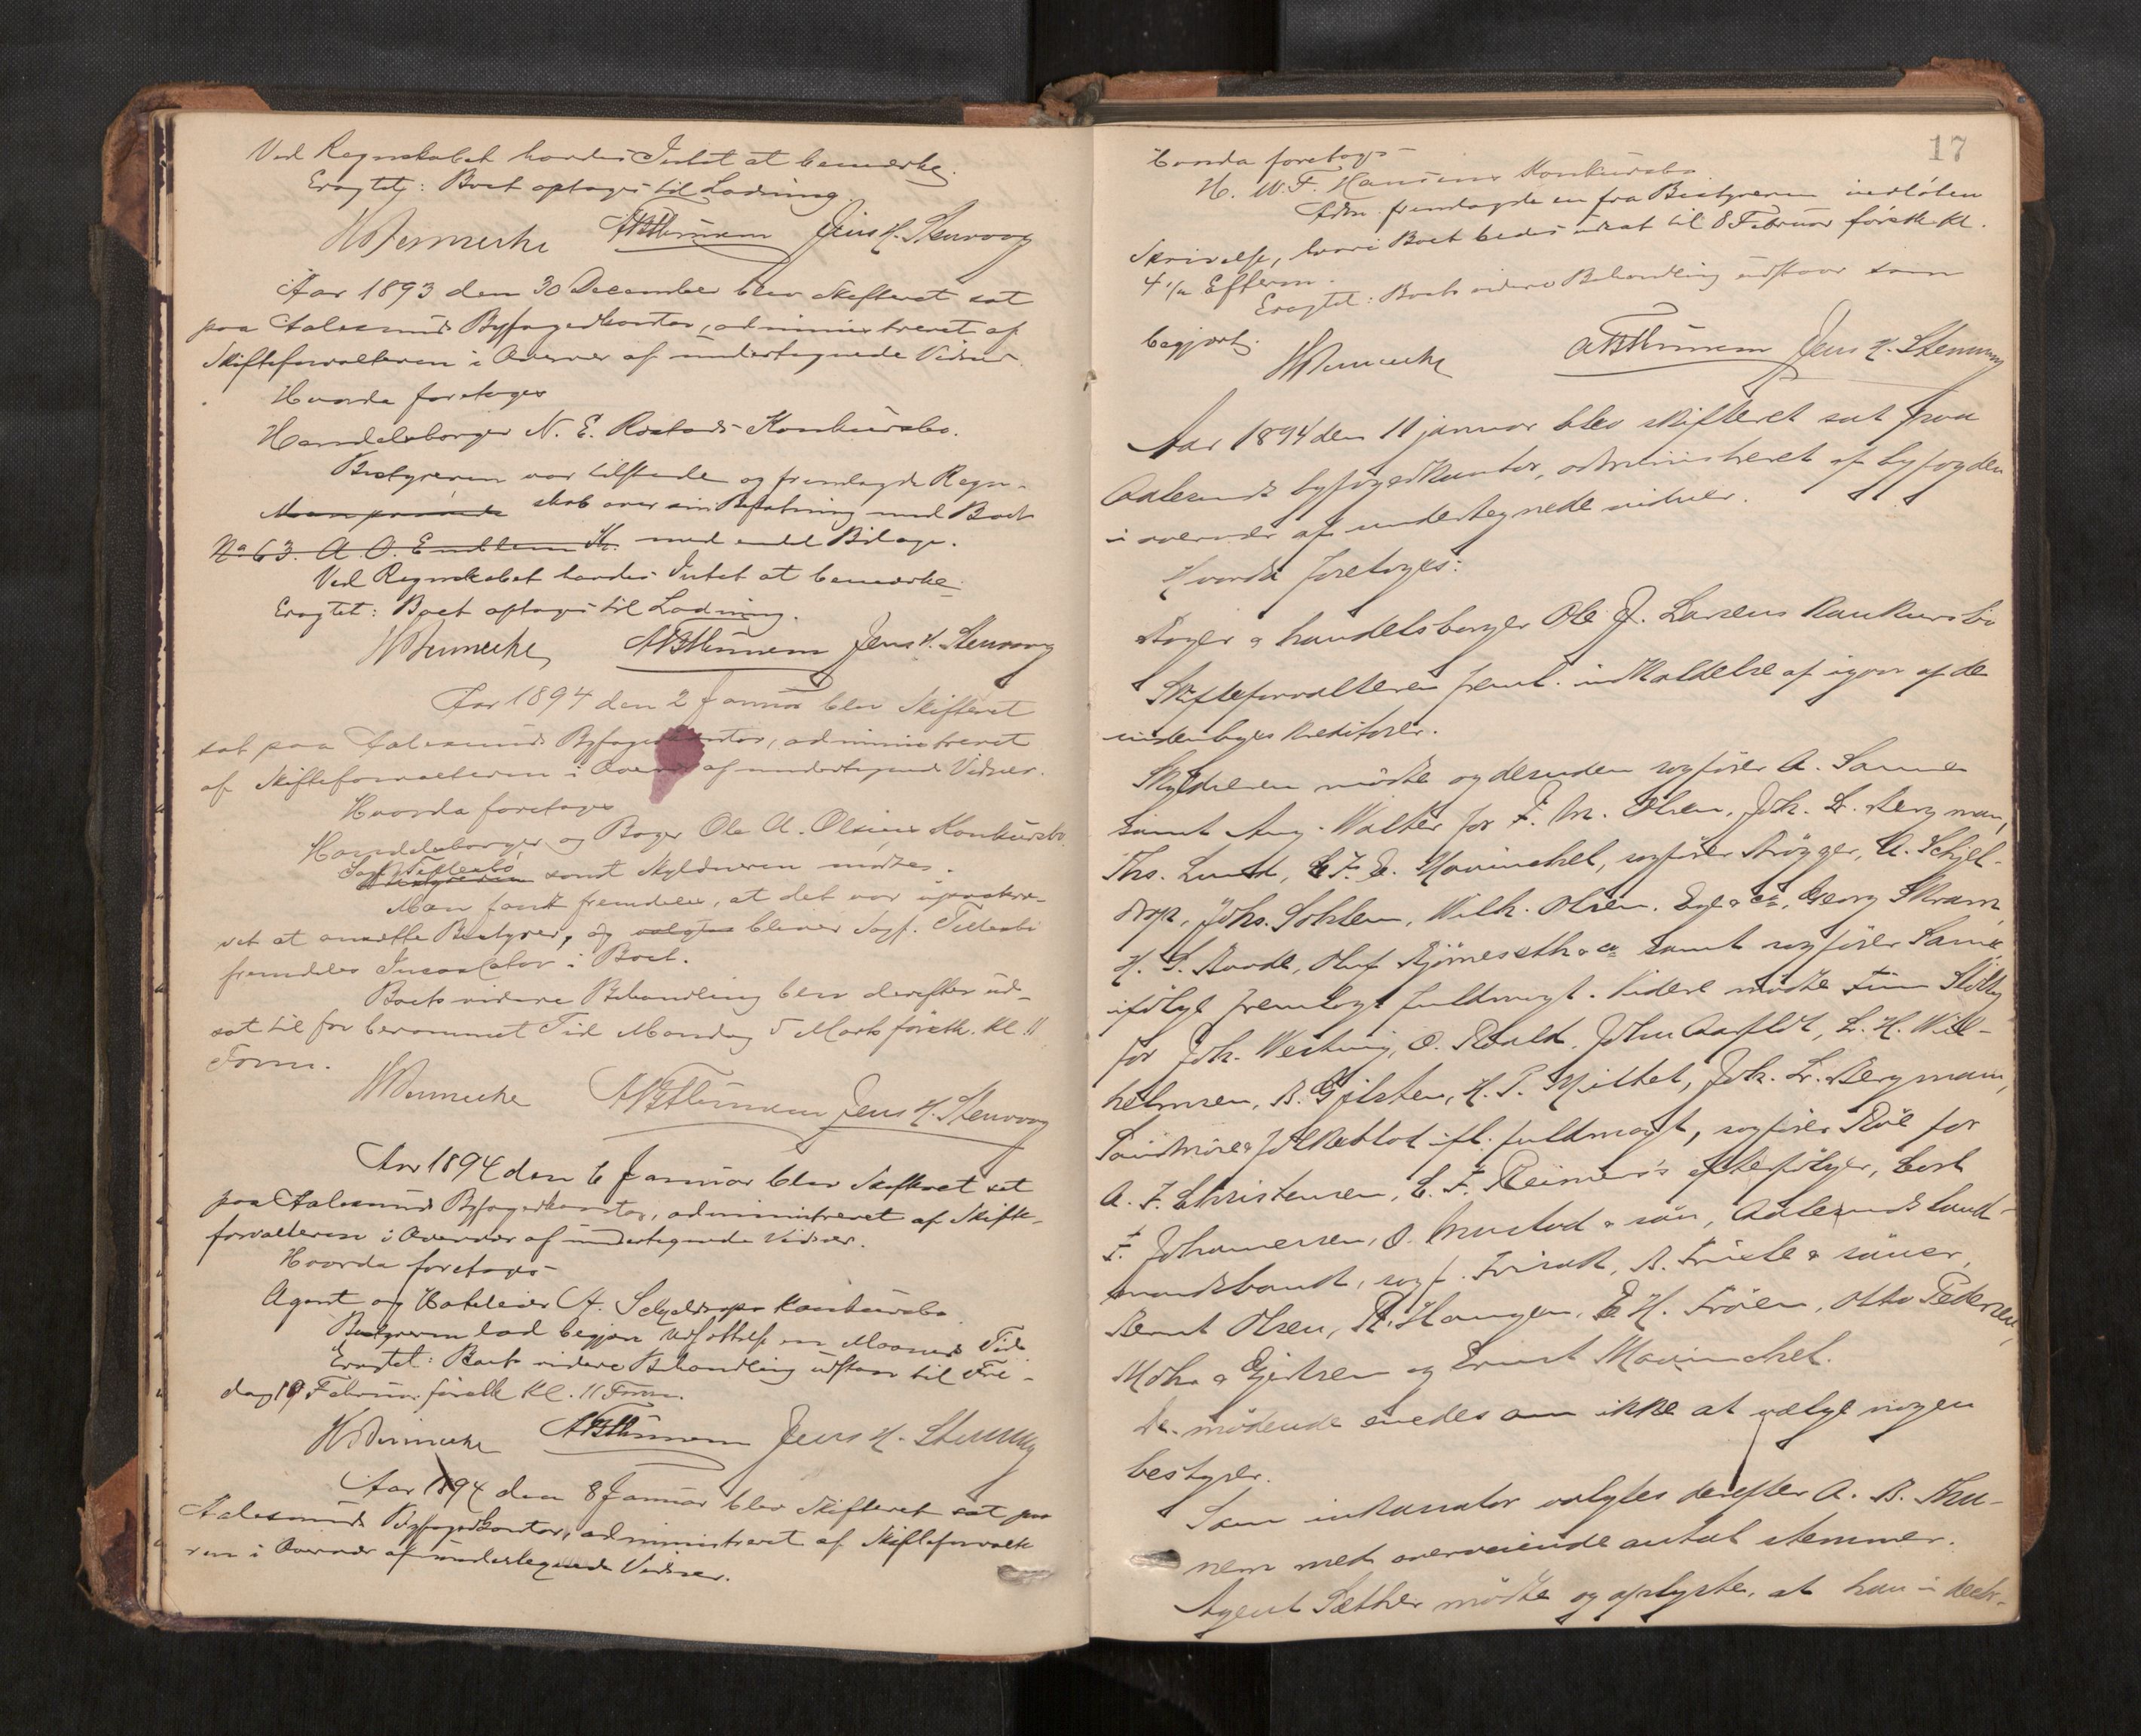 Ved Regnskabet havdes Intet at bemærke.
Eragtet: Boet optages til Lodning.
A B Thunem Jens H. Stenvaag
Aar 1893 den 30 December blev Skifteret sat
paa Aalesunds Byfogedkontor, administreret af
Skifteforvalteren i Overvær af undertegnede Vidner.
Hvorda foretoges
Handelsborger N. E. Rostads Konkursbo.
Bestyreren var tilstede og fremlagde Regn-
skab over sin Befatning med Boet
No 63. A. O. Emblem Kr. med endel Bilage.
Ved Regnskabet havdes Intet at bemærke.
Eragtet: Boet optages til Lodning.
A B Thunem Jens H. Stenvaag
Aar 1894 den 2 Januar blev Skifteret
sat paa Aalesunds Byfogedkontor, administreret
af Skifteforvalteren i Overvær af undertegnede Vidner.
Hvorda foretoges
Handelsborger og Bager Ole A. Olsens Konkursbo.
Sagf. Teftesbö
Bestyreren samt Skyldneren mødte.
Man fandt fremdeles, at det var upaakræ-
vet at ansætte Bestyrer, og valgtes bliver Sagf.
fremdeles Incassator i Boet.
Boets videre Behandling blev derefter ud-
sat til før berammet Tid Mandag 5 Marts førstk. Kl. 11
Form.
A B Thunem Jens H. Stenvaag
Aar 1894 den 6 Januar blev Skifteret sat
paa Aalesunds Byfogedkontor, administreret af Skifte-
forvalteren i Overvær af undertegnede Vidner.
Hvorda foretoges
Agent og Hoteleier A. Schjeldrops Konkursbo.
Bestyreren lod begjære Udsættelse en Maaneds Tid.
Eragtet: Boets videre Behandling udstaar til Fre-
dag 19 Februar førstk Kl. 11 Form.
A B Thunem Jens H. Stenvaag
Aar 1894 den 8 Januar blev Skifteret sat paa
Aalesunds Byfogedkontor, administreret af Skifteforvalte
ren i Overvær af undertegnede Vidner.
17
Hvorda foretoges
H. W. F. Hansens Konkursbo.
Adm. fremlagde en fra Bestyreren indløben
Skrivelse, hvori Boet bedes udsat til 8 Februar førstk. Kl.
4 1/2 Efterm.
Eragtet: Boets videre Behandling udstaar som
begjært.
A B Thunem Jens H. Stenvaag
Aar 1894 den 11 januar blev skifteret sat paa
Aalesunds byfogedkontor, administreret af byfogden
i overvær af undertegnede vidner.
Hvorda foretoges:
Bager & handelsborger Ole J. Larsens Konkursbo
Skifteforvalteren freml. indkaldelse af igaar af de
indenbyes kreditorer.
Skyldneren mødte og desuden sagfører A. Sanne
samt Aug. Walter for F. M. Olsen, Joh. Lr. Bergman,
Ths. Lund, C. F. D. Mowinckel, sagfører Brøgger, A. Schjel-
drop, Johs. Sohlen, Wilh. Olsen, Ege & co, Georg Skram,
H. S. Aarde, Oluf Bjørneseth & co samt sagfører Sanne
ifølge fremlagt fuldmagt. Videre mødte
for Joh. Westing, O. Roald, John Aarflot, L. H. Will-
helmsen, B. Gjelsten, H. P. Kjillet, Joh. Lr. Bergman,
Søndmøre folkeblad ifl. fuldmagt, sagfører Röe for
A. F. Christensen, C. F. Reimers's efterfølger, Carl
F. Johannessen, O. Mustad & søn, Aalesunds land-
mandsbank, sagf. Frisak, B. Friele & sønner,
Bernt Olsen, R. Haugen, E. H. Frøen, Otto Pedersen,
Mohn & Gjertsen og Ernst Mowinckel.
De mødende enedes om ikke at vælge nogen
bestyrer.
Som inkassator valgtes derefter A. B. Thu-
nem med overveiende antal stemmer.
Agent Sæther mødte og oplyste, at han i